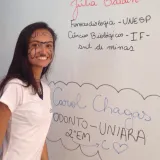 Júlia
Fonoaudiologia - UNESP
Ciências Biológicas - IF-
sul de minas
Carol Chagas
ODONTO - UNIARA
2°EM. C ♡